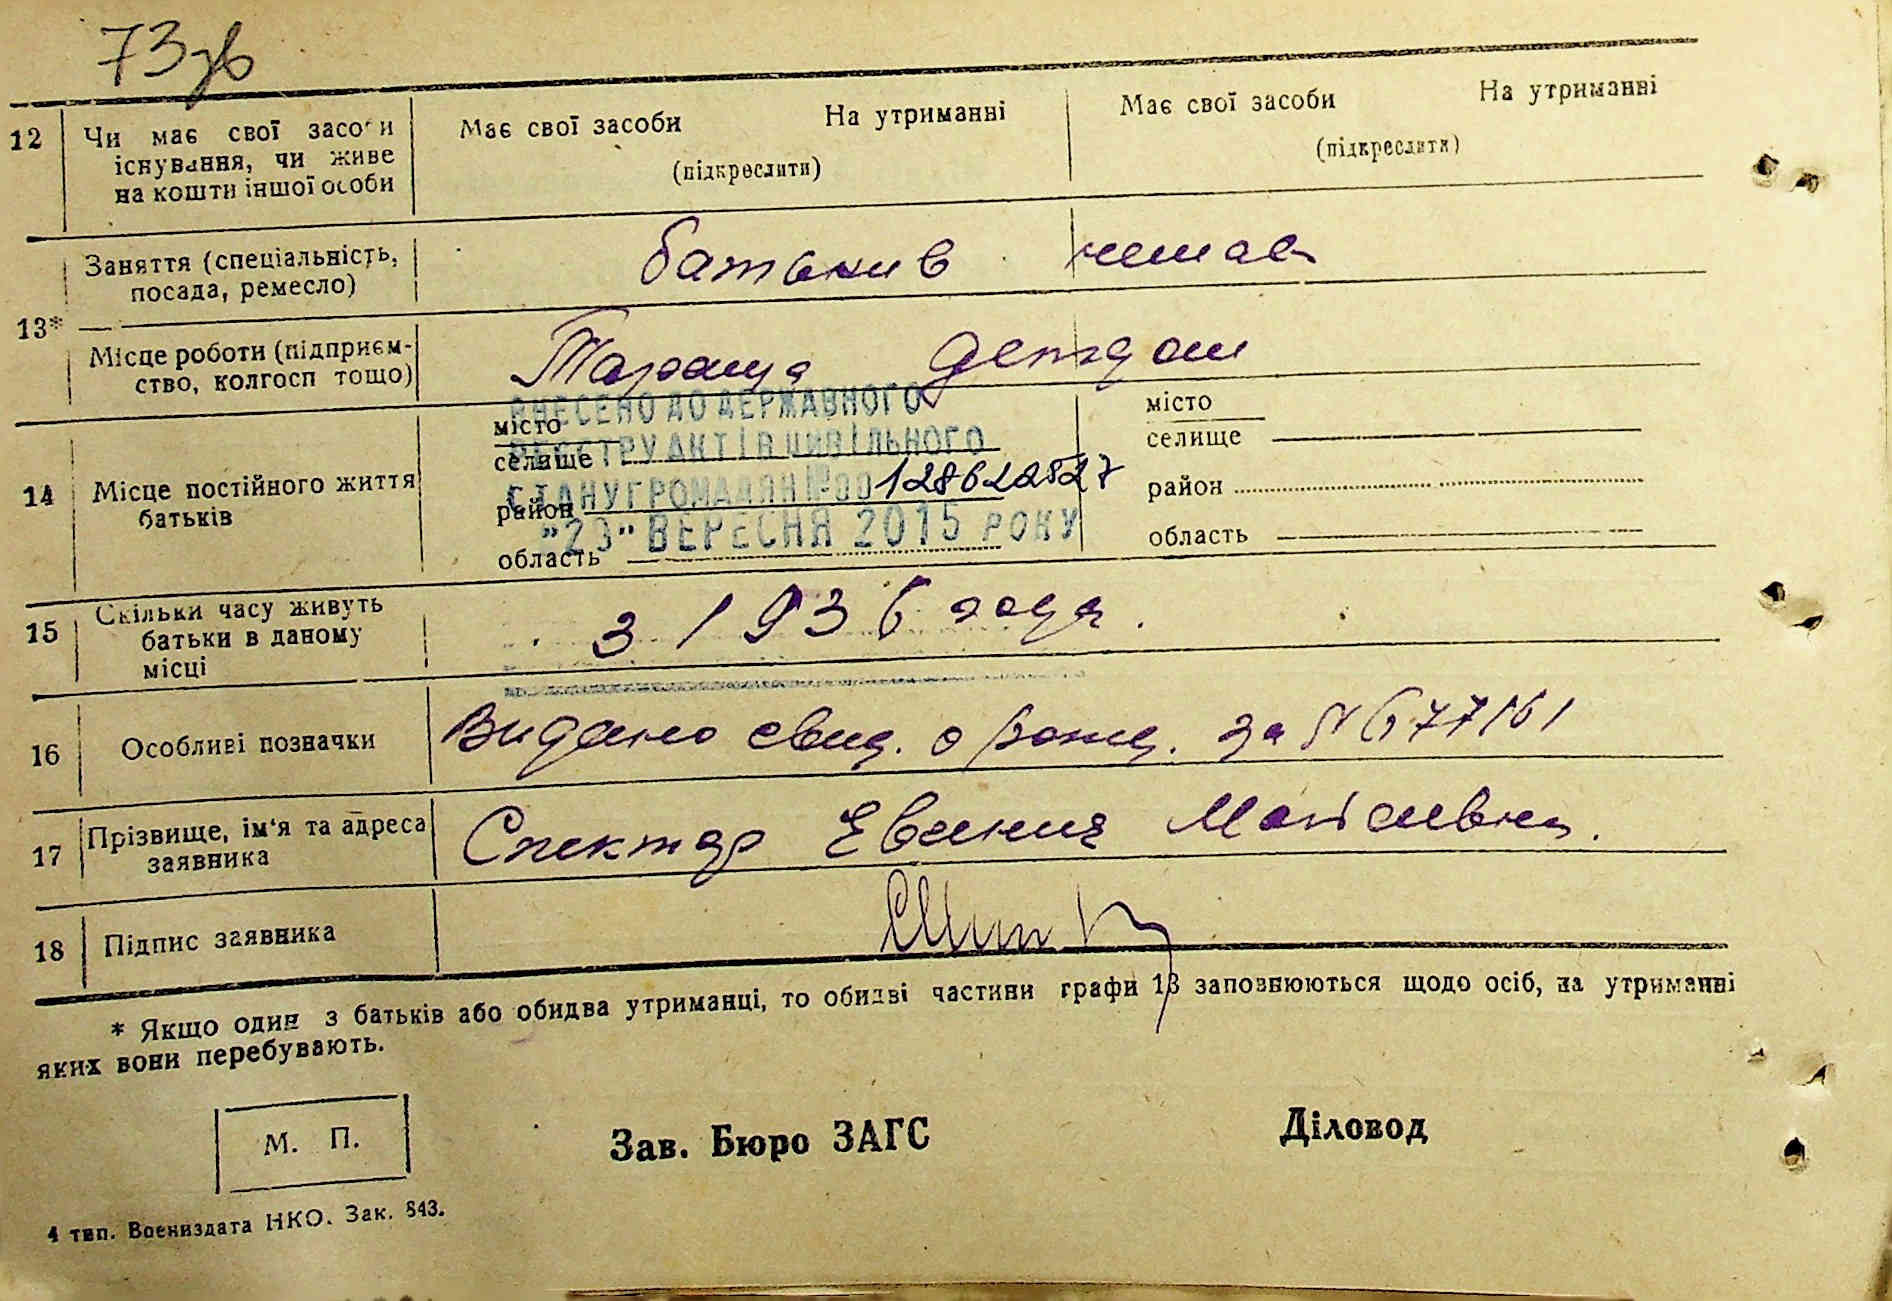 73зв
12 Чи має свої засоби Має свої засоби На утриманні Має свої засоби На утриманні
існування, чи живе (підкреслити) (підкреслити)
на кошти іншої особи
Заняття (спеціальність, батьків немає
посада, ремесло)
13*
Місце роботи (підприєм- Тараща детдом
ство, колгосп тощо)
ВНЕСЕНО ДО ДЕРЖАВНОГО
місто місто
РЕЄСТРУ АКТІВ ЦИВІЛЬНОГО
селище селище
14 Місце постійного життя СТАНУ ГРОМАДЯН №00128622827
батьків район район
"23" ВЕРЕСНЯ 2015 РОКУ
область область
15 Скільки часу живуть з 1936 года.
батьки в даному
місці
16 Особливі позначки Видано свид. о рожд. за № 677161
17 Прізвище, ім'я та адреса Спектор
заявника
18 Підпис заявника
* Якщо один з батьків або обидва утриманці, то обидві частини графи 13 заповнюються щодо осіб, на утриманні
яких вони перебувають.
М. П. Зав. Бюро ЗАГС Діловод
4 тип. Воениздата НКО. Зак. 843.